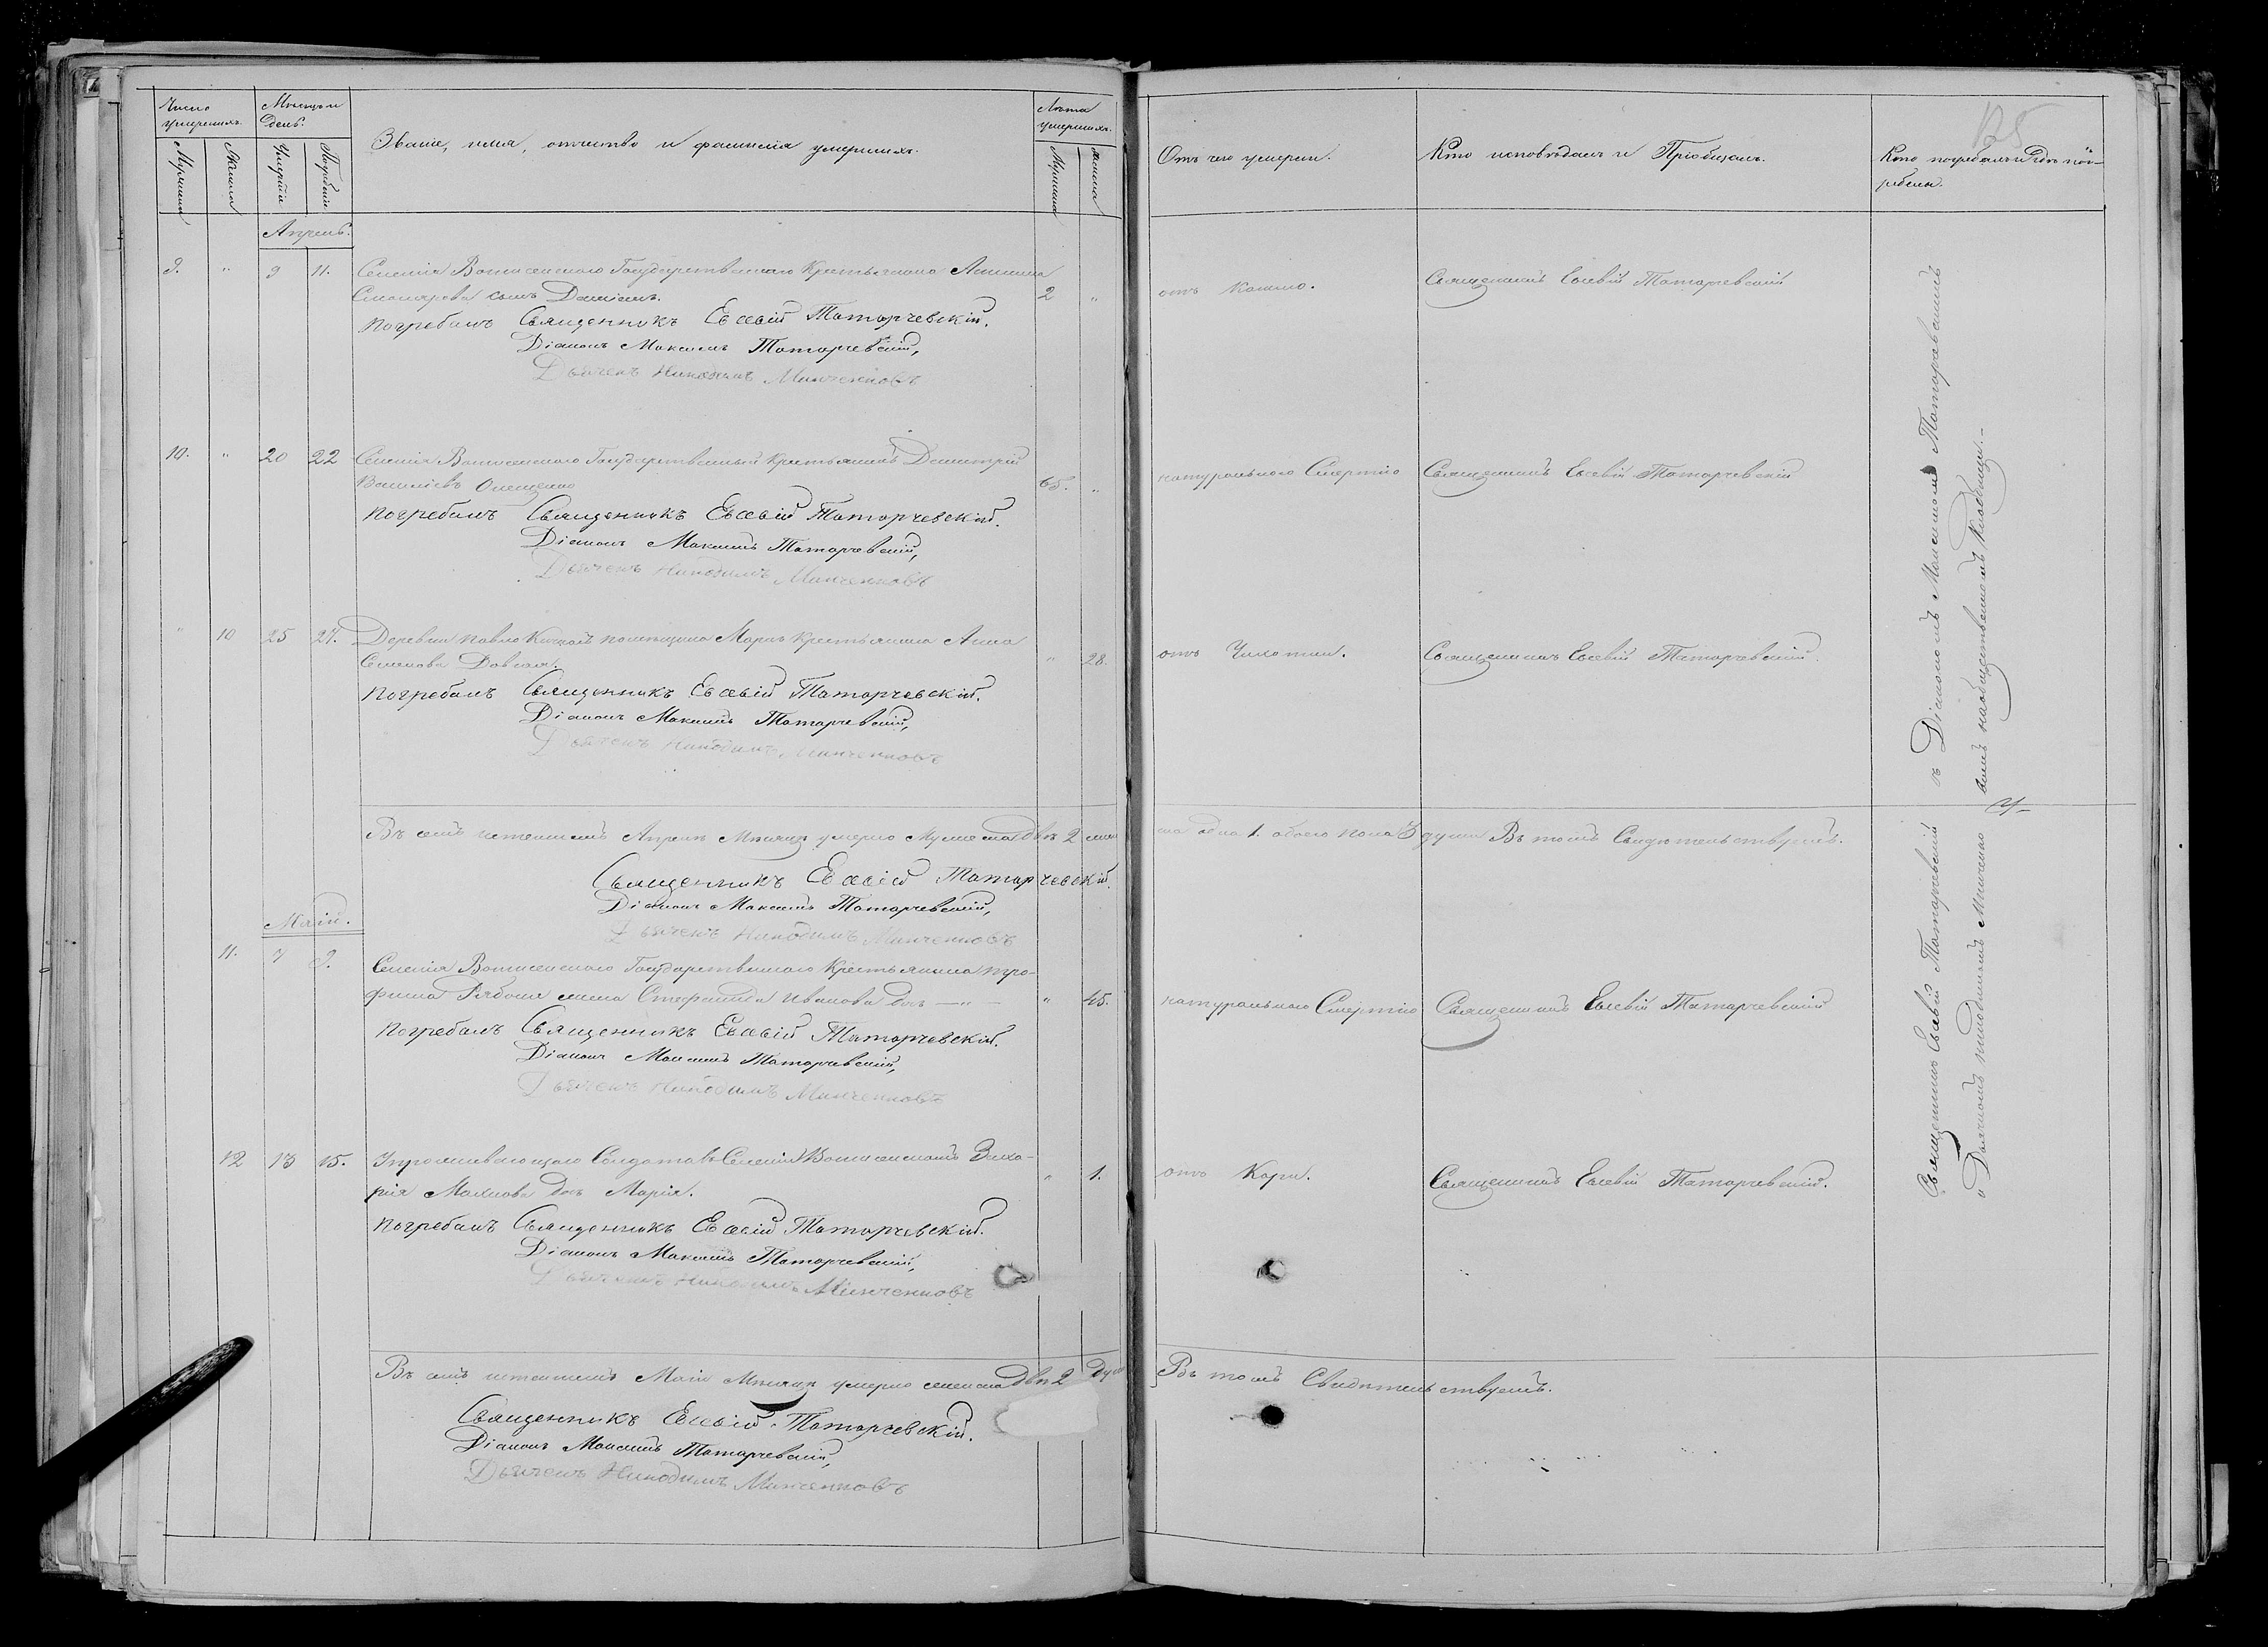 Число умершихъ.
Мѣсяцъ и день.
Званіе, имя, отчество и фамилія умершихъ.
Лѣта умершихъ.
Мужеска
Женска
Умертія
Погребенія
Мужеска
Женска
Отъ чего умерли.
Кто исповѣдалъ и Пріобщалъ.
Кто погребалъ и гдѣ погребены.
Апрель.
9. " 9 11. Селенія Вознесенского Государственного Крестьянина
сынъ Даніилъ. 2 "
отъ Кашлю.
Священникъ Евсевій Татарчевскій
Погребалъ Священникъ Евсевій Татарчевскій.
Діаконъ Максимъ Татарчевскій,
Дьячекъ Никодимъ Минченковъ
10. " 20 22 Селенія Вознесенского Государственный Крестьянинъ Димитрій
Василіевъ Онищенко 65. "
натурального Смертію
Священникъ Евсевій Татарчевскій
Погребалъ Священникъ Евсевій Татарчевскій.
Діаконъ Максимъ Татарчевскій,
Дьячекъ Никодимъ Минченковъ
" 10 25 27. Деревни помѣщика Марка крестьянка Анна
Семенова " 28.
отъ Чихотки.
Священникъ Евсевій Татарчевскій.
Погребалъ Священникъ Евсевій Татарчевскій.
Діаконъ Максимъ Татарчевскій,
Дьячекъ Никодимъ Минченковъ
Въ семъ истекшемъ Апрелѣ Мѣсяцѣ умерло Мужеска два 2 женска одна 1. обоего пола 3 души Въ томъ Свидѣтельствуемъ.
Священникъ Евсевій Татарчевскій.
Діаконъ Максимъ Татарчевскій,
Дьячекъ Никодимъ Минченковъ
Маій.
11. 7 9. Селенія Вознесенского Государственного Крестьянина Тро-
фима жена Стефанида Иванова " 45.
натурального Смертію
Священникъ Евсевій Татарчевскій
Погребалъ Священникъ Евсевій Татарчевскій.
Діаконъ Максимъ Татарчевскій,
Дьячекъ Никодимъ Минченковъ
12 13 15. Селеніи Вознесенскомъ Заха-
рія дочь Марія. " 1.
отъ Кори.
Священникъ Евсевій Татарчевскій.
Погребалъ Священникъ Евсевій Татарчевскій.
Діаконъ Максимъ Татарчевскій,
Дьячекъ Никодимъ Минченковъ
Въ семъ истекшемъ Маіи Мѣсяцѣ умерло женска двѣ 2 души Въ томъ Свидѣтельствуемъ.
Священникъ Евсевій Татарчевскій.
Діаконъ Максимъ Татарчевскій,
Дьячекъ Никодимъ Минченковъ
Священникъ Евсевій Татарчевскій съ Діакономъ Максимомъ Татарчевскимъ
и Дьячкомъ Никодимомъ Минченко на общественномъ Кладбищѣ.